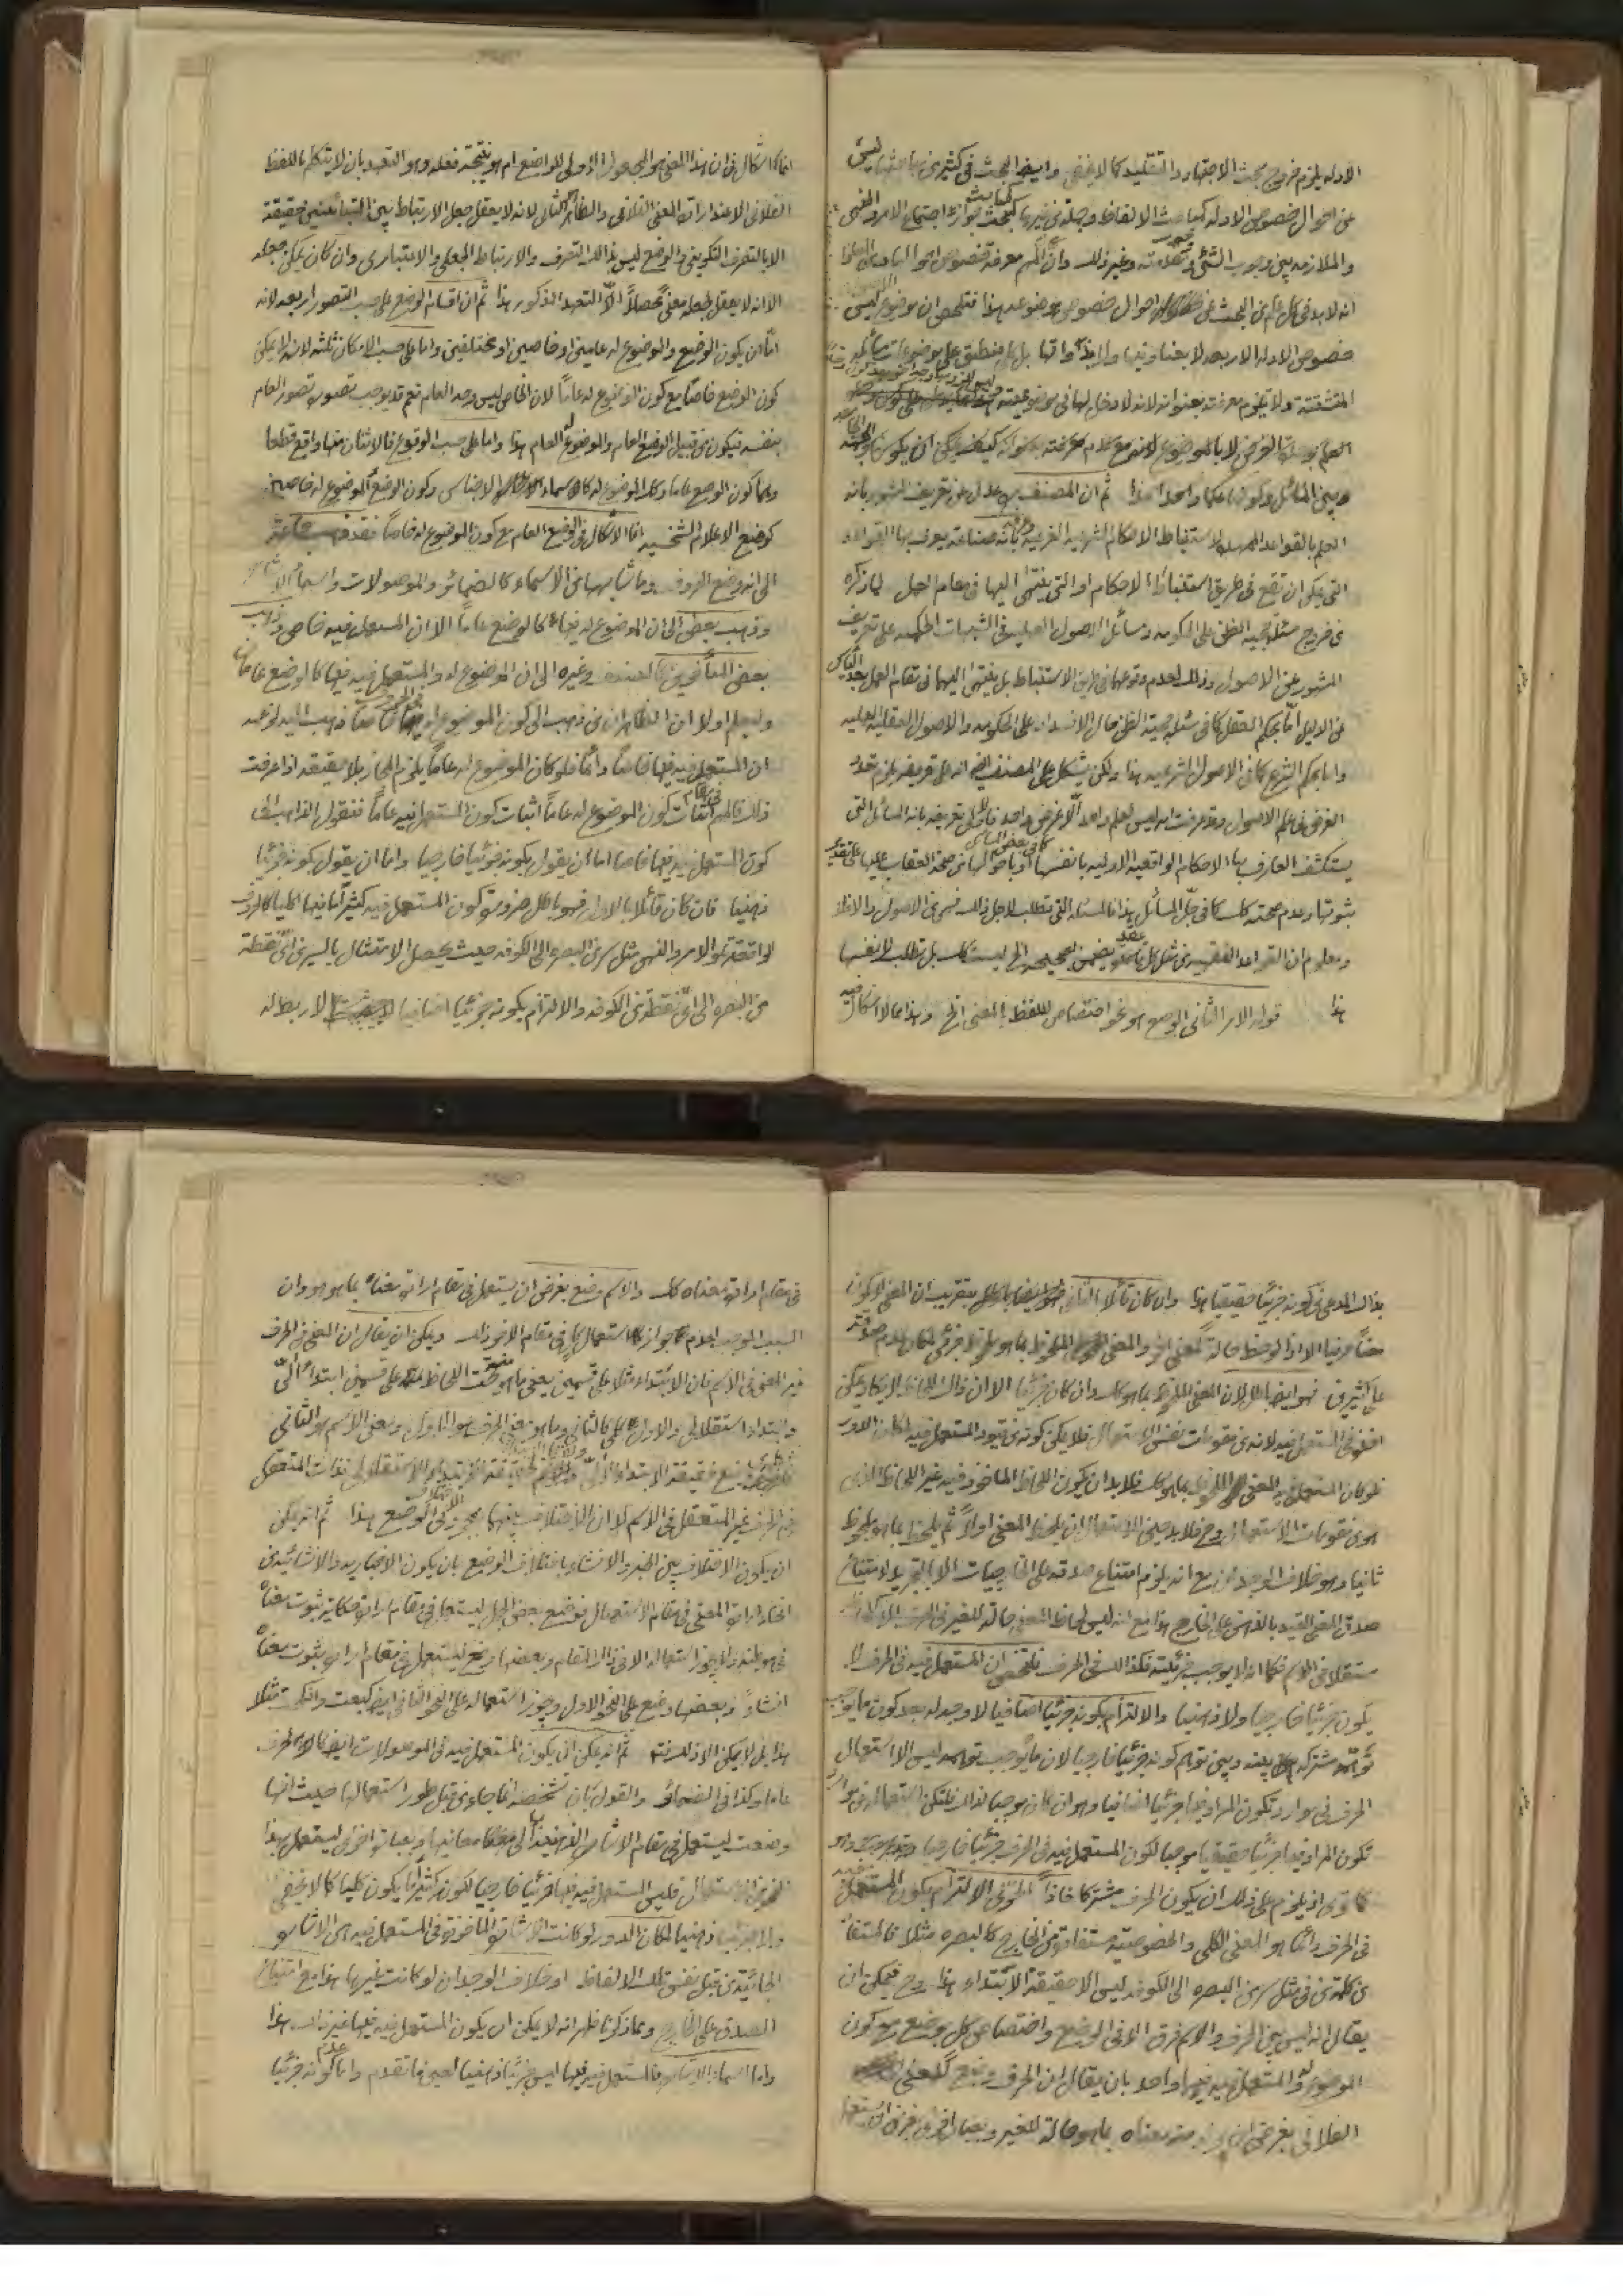 الادله يلزم خروج بحث الاجتهاد والتقليد كما لا يخفى وايضا البحث فى كثير من مباحثها ليس
عن احوال خصوص الادله كمباحث الالفاظ وجملة من غيرها كمبحث جواز اجتماع الامر والنهى
والملازمه بين وجوب الشئ ووجوب مقدمته وغير ذلك
انه لابد فى كل علم من البحث عن احوال خصوص موضوعه هذا فتلخص ان موضوعه ليس
خصوص الادله الاربعه لا بعناوينها ولا بذواتها بل ما ينطبق على موضوعات مسائله
المتشتته ولا يلزم معرفته بعنوانه لانه لا دخل لها فى موضوعيته
وبين المسائل وكونها علما واحدا هذا ثم ان المصنف عدل عن تعريف المشهور بانه
العلم بالقواعد الممهده لاستنباط الاحكام الشرعيه الفرعيه بانه صناعة يعرف بها القواعد
التى يمكن ان تقع فى طريق استنباط الاحكام او التى ينتهى اليها فى مقام العمل لما ذكره
من خروج مسئله حجيه الظن على الحكومه ومسائل الاصول العمليه فى الشبهات الحكميه على تعريف
المشهور عن الاصول وذلك لعدم وقوعها فى طريق الاستنباط بل ينتهى اليها فى مقام العمل بعد الياس
عن الدليل اما بحكم العقل كما فى مسئله حجية الظن حال الانسداد على الحكومه والاصول العقليه العمليه
واما بحكم الشرع كما فى الاصول الشرعيه هذا ولكن يشكل على المصنف ايضا انه على تعريفه يلزم تعدد
الغرض فى علم الاصول وقد عرفت انه ليس لعلم واحد الا غرض واحد فالاولى تعريفه بانه المسائل التى
يستكشف العارف بها الاحكام الواقعيه الاوليه بانفسها او صحة العقاب عليها على تقدير
ثبوتها وعدم صحته كك كما فى جل المسائل هذا فالمسئله التى يتطلب لاجل ذلك فهى من الاصول والا فلا
ومعلوم ان القواعد الفقهيه من مثل كل عقد يضمن بصحيحه الخ ليست كك بل تطلب لانفسها
هذا قوله الامر الثانى الوضع هو نحو اختصاص للفظ بالمعنى الخ وهذا مما لا اشكال فيه
انما الاشكال فى ان هذا المعنى هو المجعول الاولى للواضع ام هو نتيجة فعله وهو التعهد بان لا يتكلم باللفظ
الفلانى الا عند ارادة المعنى الفلانى والظاهر الثانى لانه لا يعقل جعل الارتباط بين المتباينين حقيقة
الا بالتصرف التكوينى والوضع ليس بذلك التصرف والارتباط الجعلى والاعتبارى وان كان يمكن جعله
الا انه لا يعقل لجعله معنى محصلا الا التعهد المذكور هذا ثم ان اقسام الوضع على حسب التصور اربعه لانه
اما ان يكون الوضع والموضوع له عامين او خاصين او مختلفين واما على حسب الامكان ثلثه لانه لا يمكن
كون الوضع خاصا مع كون الموضوع له عاما لان الخاص ليس وجه العام نعم قد يوجب تصوره تصور العام
بنفسه فيكون من قبيل الوضع العام والموضوع له العام هذا واما على حسب الوقوع فالاثنان منها واقع قطعا
وهما كون الوضع عاما وكذا الموضوع له كاسماء الاجناس وكون الوضع والموضوع له خاصين
كوضع الاعلام الشخصيه انما الاشكال فى الوضع العام مع كون الموضوع له خاصا فقد ذهب جماعة
الى انه وضع الحروف وما شابهها من الاسماء كالضمائر والموصولات واسماء الاشاره
وذهب بعض الى ان الموضوع له فيها كالوضع عاما الا ان المستعمل فيه خاص وذهب
بعض المتأخرين كالمصنف وغيره الى ان الموضوع له والمستعمل فيه فيها كالوضع عامان
وليعلم اولا ان الظاهر ان من ذهب الى كون الموضوع له فيها خاصا ذهب اليه لزعمه
ان المستعمل فيه فيها خاصا دائما فلو كان الموضوع له عاما يلزم المجاز بلا حقيقه اذا عرفت
ذلك فالمهم فى مقام اثبات كون الموضوع له عاما اثبات كون المستعمل فيه عاما فنقول الذاهب الى
كون المستعمل فيه فيها خاصا اما ان يقول بكونه جزئيا خارجيا واما ان يقول بكونه جزئيا
ذهنيا فان كان قائلا بالاول فهو باطل ضرورة كون المستعمل فيه كثيرا ما فيها كليا كالحروف
الواقعة تلو الامر والنهى مثل سر من البصره الى الكوفه حيث يحصل الامتثال بالسير من اى نقطة
من البصره الى اى نقطة من الكوفه والالتزام بكونه جزئيا اضافيا لا ربط له
بذلك المدعى من كونه جزئيا حقيقيا هذا وان كان قائلا بالثانى بتقريب ان المعنى لا يكون
معنا حرفيا الا اذا لوحظ حالة لمعنى اخر والمعنى الملحوظ بما هو ملحوظ جزئى لمكان عدم صدقه
على كثيرين فهو ايضا باطل لان المعنى الملحوظ بما هو كك وان كان جزئيا الا ان ذلك اللحاظ لا يكاد يمكن
اخذه فى المستعمل فيه لانه من مقومات نفس الاستعمال فلا يمكن كونه من قيود المستعمل فيه لمكان الدور
فلو كان المستعمل فيه المعنى الملحوظ بما هو كك فلابد ان يكون اللحاظ الماخوذ فيه غير اللحاظ الذى
هو من مقومات الاستعمال وح فلابد حين الاستعمال ان يلحظ المعنى اولا ثم يلحظ بما هو ملحوظ
ثانيا وهو خلاف الوجدان مع انه يلزم امتناع صدقه على الخارجيات الا بالتجريد لامتناع
صدق المعنى المقيد بالذهن على الخارج هذا مع انه ليس لحاظ المعنى حالة للغير فى الحرف الا كلحاظه
مستقلا فى الاسم فكما انه لا يوجب جزئيته فكذلك فى الحرف فتلخص ان المستعمل فيه فى الحرف لا
يكون جزئيا خارجيا ولا ذهنيا والالتزام بكونه جزئيا اضافيا لا وجه له بعد كون ما يوجب
توهمه مشتركه بينه وبين توهم كونه جزئيا خارجيا لان ما يوجب توهمه ليس الا استعمال
الحرف فى موارد تكون المراد فيها جزئيا اضافيا وهو ان كان موجبا لذلك فليكن استعماله فى موارد
تكون المراد فيها جزئيا حقيقيا موجبا لكون المستعمل فيه فى الحرف جزئيا خارجيا وهو
كما ترى اذ يلزم على ذلك ان يكون الحرف مشتركا فاذا الالتزام بكون المستعمل فيه
فى الحرف دائما هو المعنى الكلى والخصوصيته مستفادة من الخارج كالبصره مثلا فالمستفاد
من كلمة من فى مثل سر من البصره الى الكوفه ليس الا حقيقة الابتداء هذا وح فيمكن ان
يقال انه ليس بين الحرف والاسم فرق الا فى الوضع واختصاص كل بوضع مع كون
الموضوع له والمستعمل فيه فيهما واحد بان يقال ان الحرف وضع للمعنى
الفلانى بغرض ان يراد منه معناه بما هو حالة للغير وبعبارة اخرى بغرض ان يستعمل
فى مقام ارادة معناه كك والاسم وضع بغرض ان يستعمل فى مقام ارادة معناه بما هو هو وان
السبب الموجب لعدم جواز استعمال كل فى مقام الاخر ذلك ويمكن ان يقال ان المعنى فى الحرف
غير المعنى فى الاسم فان الابتداء مثلا على قسمين يعنى ما هو تحت اللحاظ منه على قسمين ابتداء آلى
وابتداء استقلالى والاول كلى كالثانى وما هو معنى الحرف هو الاول ومعنى الاسم هو الثانى
فى الحرف غير المتعقل فى الاسم لا ان الاختلاف بينهما بمجرد الاختلاف فى الوضع هذا ثم انه يمكن
ان يكون الاختلاف بين الخبر والانشاء باختلاف الوضع بان يكون الاخباريه والانشائيه من
انحاء ارادة المعنى فى مقام الاستعمال فوضع بعض الجمل ليستعمل فى مقام ارادة حكاية ثبوت معناه
فى موطنه ولا يجوز استعماله الا فى ذلك المقام وبعضها وضع ليستعمل فى مقام ارادة ثبوت معناه
انشاء وبعضها وضع على النحو الاول ويجوز استعماله على النحو الثانى ايضا كبعت وانكحت مثلا
هذا بل لا يمكن الا ذلك فتدبر ثم انه يمكن ان يكون المستعمل فيه فى الموصولات ايضا كالحرف
عاما وكذا فى الضمائر والقول بان تشخصه انما جاء من قبل طور استعمالها حيث انها
وضعت ليستعمل فى مقام الاشارة الى معانيها وبعبارة اخرى ليستعمل بهذا
النحو من الاستعمال فليس المستعمل فيه فيها جزئيا خارجيا لكونه كثيرا ما يكون كليا كما لا يخفى
ولا جزئيا ذهنيا لمكان الدور لو كانت الاشارة الماخوذة فى المستعمل فيه هى الاشاره
الجائية من قبل نفس تلك الالفاظ او خلاف الوجدان لو كانت غيرها هذا مع امتناع
الصدق على الخارج ومما ذكرنا ظهر انه لا يمكن ان يكون المستعمل فيه فيها غير ذلك هذا
واما اسماء الاشاره فالمستعمل فيه فيها ليس جزئيا ذهنيا لعين ما تقدم واما عدم كونه جزئيا